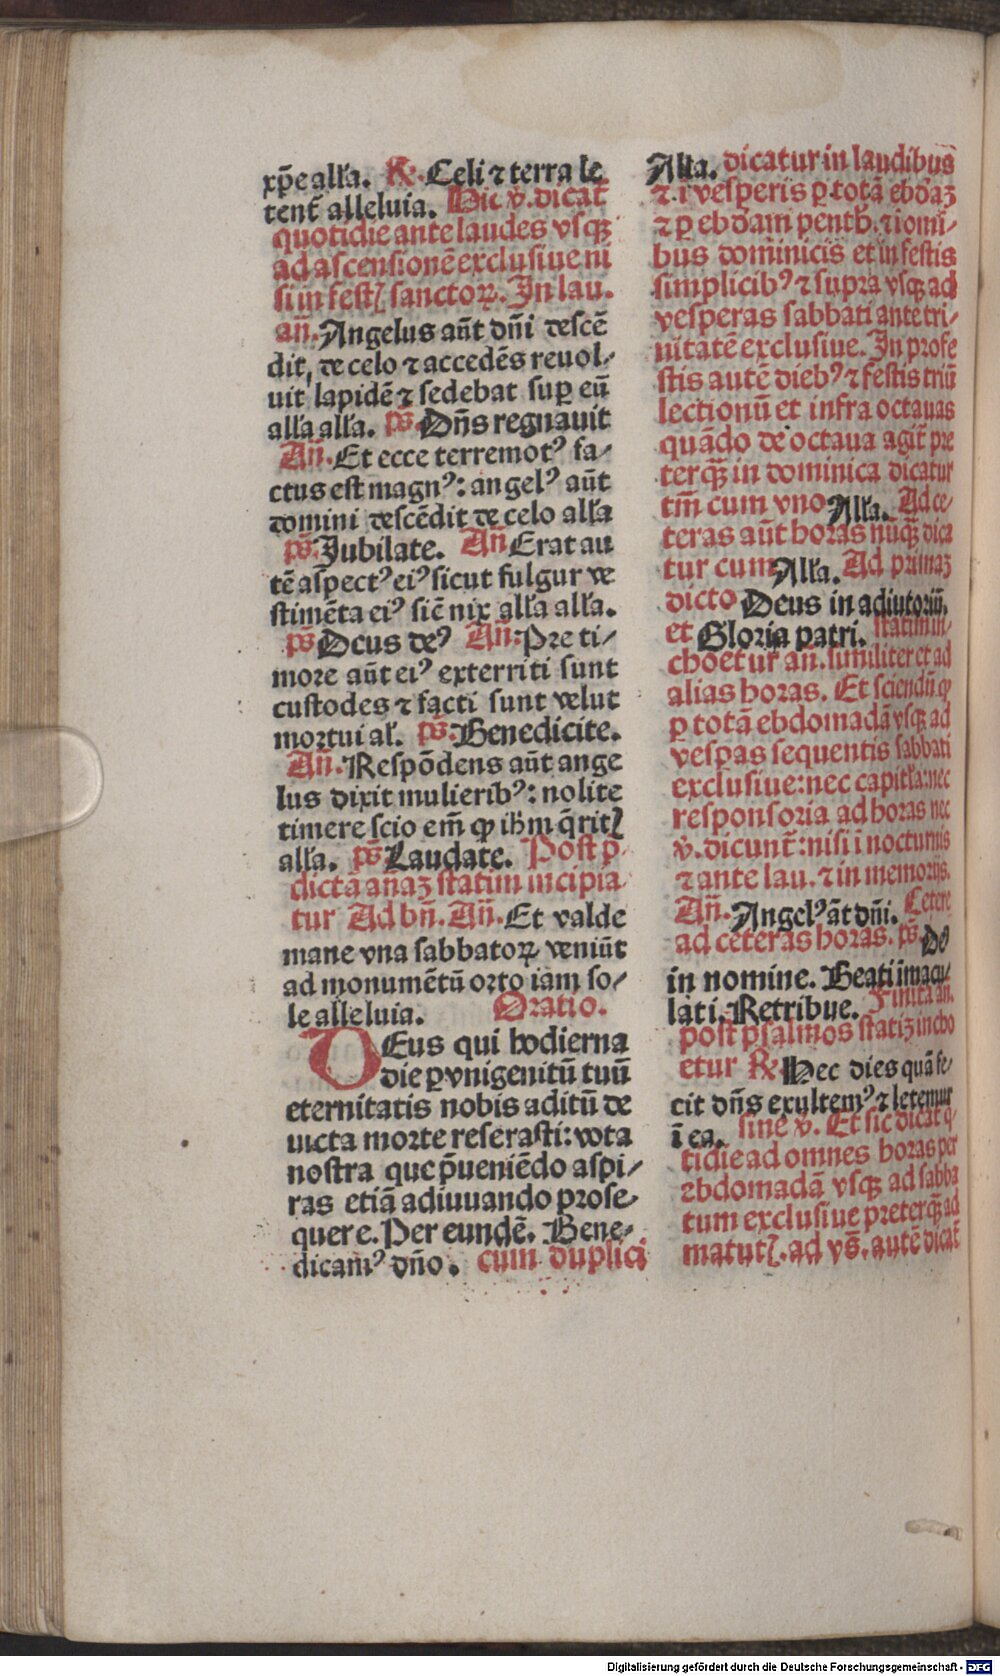 xp̄e alľa. ℟. Celi ⁊ terra le
tent᷑ alleluia. Hic ꝟ. dicat᷑
quotidie ante laudes vsqꝫ
ad ascensionē exclusiue ni
si in festꝭ sanctoꝝ. In lau.
an̄. Angelus aūt dn̄i descē
dit, de celo ⁊ accedēs reuol⸗
uit lapidē ⁊ sedebat suꝑ eū
alľa alľa. ps̄. Dn̄s regnauit
An̄. Et ecce terremotꝰ fa⸗
ctus est magnꝰ: angelꝰ aūt
domini descēdit de celo alľa
ps̄. Jubilate. An̄ Erat au
tē aspectꝰ eiꝰ sicut fulgur ve
stimēta eiꝰ siċ nix alľa alľa.
ps̄ Deus deꝰ An̄: Pre ti⸗
more aūt eiꝰ exterriti sunt
custodes ⁊ facti sunt velut
mortui aľ. ps̄. Benedicite.
An̄. Respōdens aūt ange
lus dixit mulieribꝰ: nolite
timere scio em̄ ꝙ ihm̄ q̄ritꝭ
alľa. ps̄ Laudate. Post p̄
dictā anaꝫ statim incipia
tur Ad bn̄. An̄. Et valde
mane vna sabbatoꝝ veniūt
ad monumētū orto iam so⸗
le alleluia. Oratio.
DEus qui hodierna
die ꝑ vnigenitū tuū
eternitatis nobis aditū de
uicta morte reserasti: vota
nostra que p̄ueniēdo aspi⸗
ras etiā adiuuando prose⸗
quere. Per eundē. Bene⸗
dicamꝰ dn̄o. cum duplici
Alľa. dicatur in laudibus
⁊. i vesperis ꝑ totā ebdaꝫ
⁊ ꝑ ebdam penth̄. ⁊ i omi⸗
bus dominicis et in festis
simplicibꝰ ⁊ supra vsqꝫ ad
vesperas sabbati ante tri⸗
nitatē exclusiue. In profe
stis autē diebꝰ ⁊ festis triū
lectionū et infra octauas
quādo de octaua agit᷑ pre
terqꝫ in dominica dicatur
tm̄ cum vno Alľa. Ad ce⸗
teras aūt horas nūqꝫ dica
tur cum Alľa. Ad primaꝫ
dicto Deus in adiutoriū.
et Gloria patri. statim in⸗
choetur an̄. similiter et ad
alias horas. Et sciendū ꝙ
ꝑ totā ebdomadā vsqꝫ ad
vesꝑas sequentis sabbati
exclusiue: nec capitľa: nec
responsoria ad horas nec
ꝟ. dicunt᷑: nisi ī nocturnis
⁊ ante lau. ⁊ in memorijs.
An̄. Angelꝰ āt dn̄i. Cetere
ad ceteras horas. ps̄. Dꝰ
in nomine. Beati īmacu⸗
lati. Retribue. Finita an̄.
post psalmos statiꝫ incho
etur ℟ Hec dies quā fe⸗
cit dn̄s exultemꝰ ⁊ letemur
ī ea. sine ꝟ. Et sic dicat᷑ q̇
tidie ad omnes horas per
ebdomadā vsqꝫ ad sabba
tum exclusiue preterqꝫ ad
matutꝭ. ad vs̄. autē dicat᷑
Digitalisierung gefördert durch die Deutsche Forschungsgemeinschaft - DFG